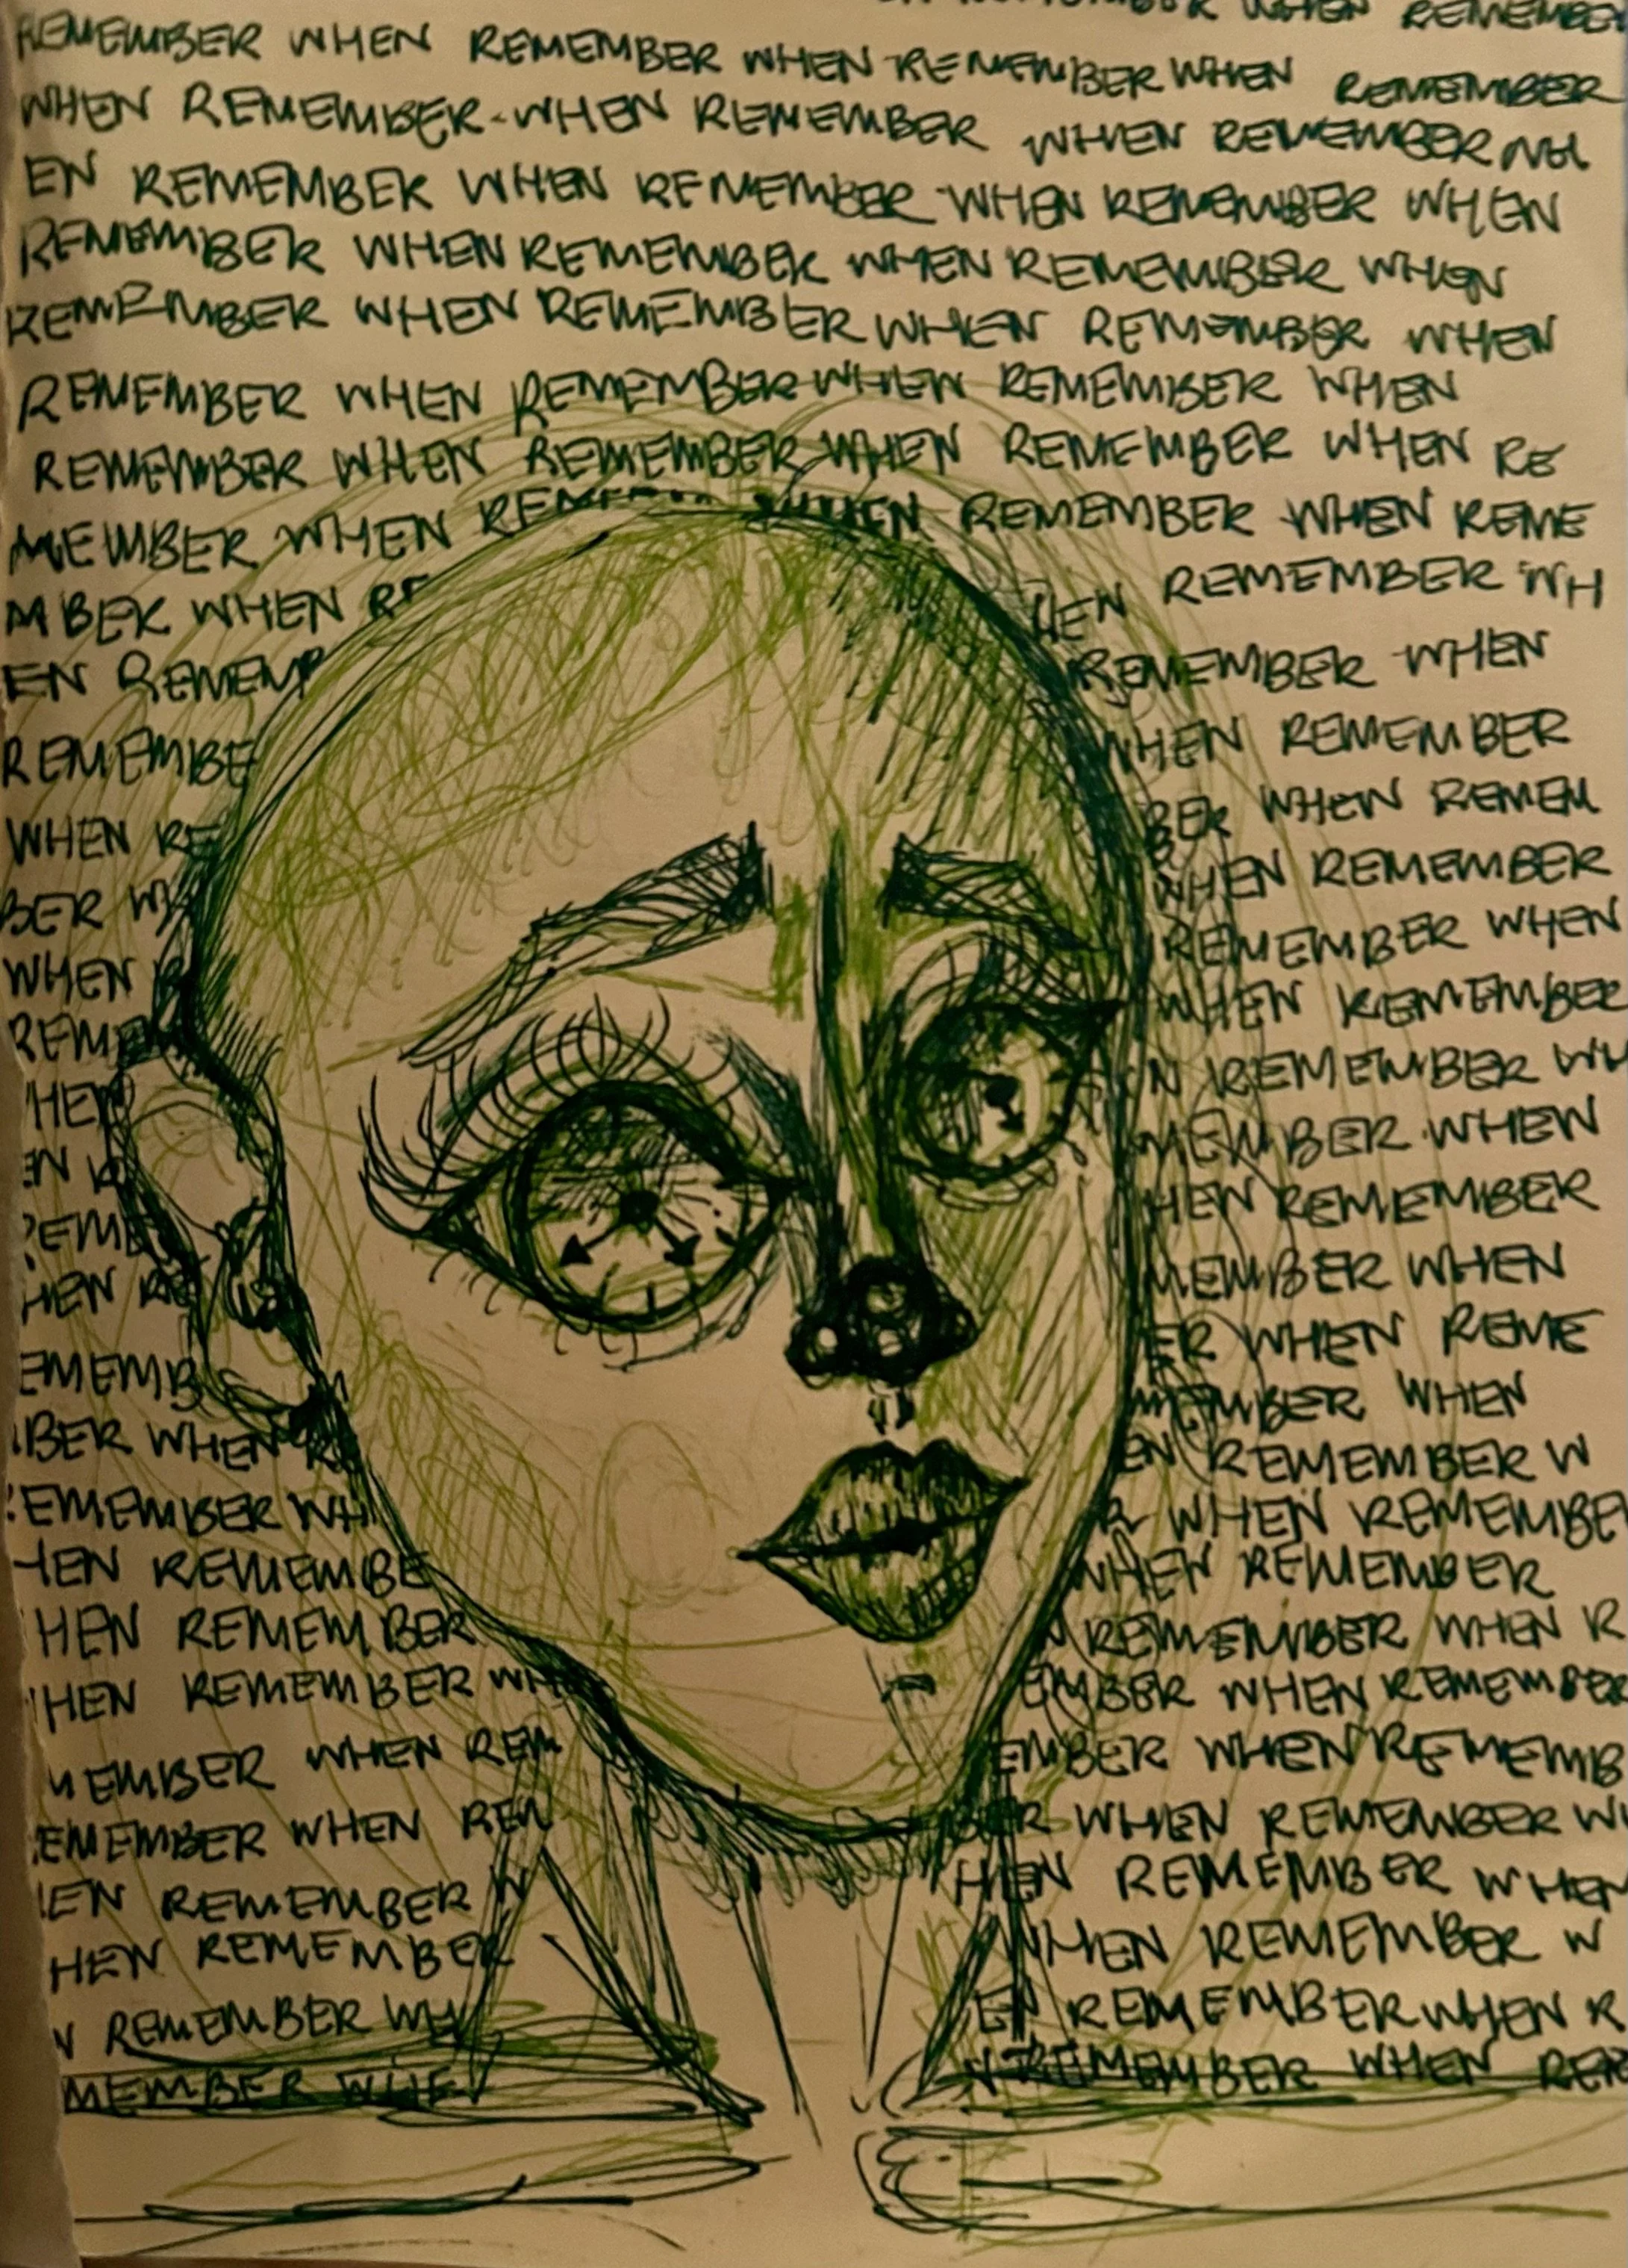 WHEN REMEMBER
REMEMBER WHEN REMEMBER WHEN REMEMBER WHEN REMEMBER
WHEN REMEMBER-WHEN REMEMBER WHEN REMEMBER WH
EN REMEMBER WHEN REMEMBER WHEN REMEMBER WHEN
REMEMBER WHEN REMEMBER WHEN REMEMBER WHEN
REMEMBER WHEN REMEMBER WHEN REMEMBER WHEN
REMEMBER WHEN REMEMBER WHEN REMEMBER WHEN
REMEMBER WHEN REMEMBER WHEN REMEMBER WHEN RE
MEMBER WHEN REME WHEN REMEMBER WHEN REME
MBER WHEN RE HEN REMEMBER WH
EN REMEMB REMEMBER WHEN
REMEMBE WHEN REMEMBER
WHEN RE BER WHEN REMEM
BER WH WHEN REMEMBER
WHEN R REMEMBER WHEN
REME WHEN REMEMBER
HEN N REMEMBER WH
EN R MEMBER WHEN
REME HEN REMEMBER
HEN RE MEMBER WHEN
EMEMB ER WHEN REME
BER WHEN RE MEMBER WHEN
EMEMBER WH EN REMEMBER W
HEN REMEMBE R WHEN REMEMBE
HEN REMEMBER WHEN REMEMBER
HEN REMEMBER WHE N REMEMBER WHEN R
MEMBER WHEN REM EMBER WHEN REMEMBER
EMEMBER WHEN REM EMBER WHEN REMEMB
EN REMEMBER W BER WHEN REMEMBER WH
HEN REMEMBER HEN REMEMBER WHEN
N REMEMBER WHE WHEN REMEMBER W
MEMBER WHE EN REMEMBER WHEN R
N REMEMBER WHEN REM